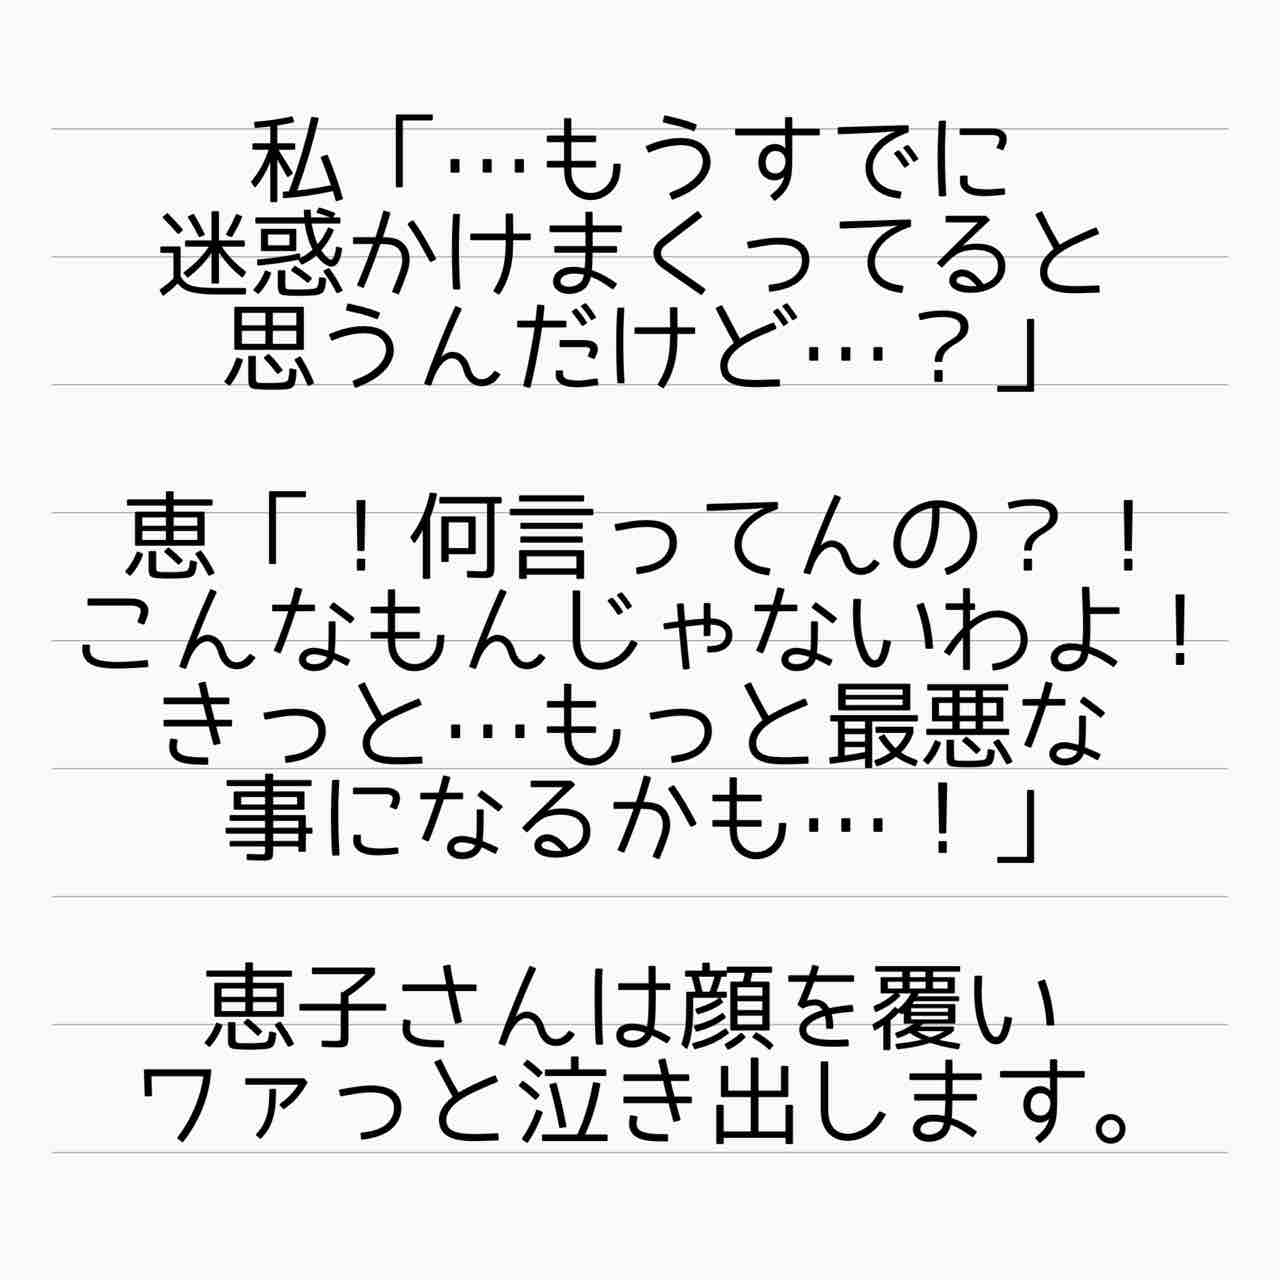 私「…もうすでに
迷惑かけまくってると
思うんだけど…？」
恵「！何言ってんの？！
こんなもんじゃないわよ！
きっと…もっと最悪な
事になるかも…！」
恵子さんは顔を覆い
ワァっと泣き出します。